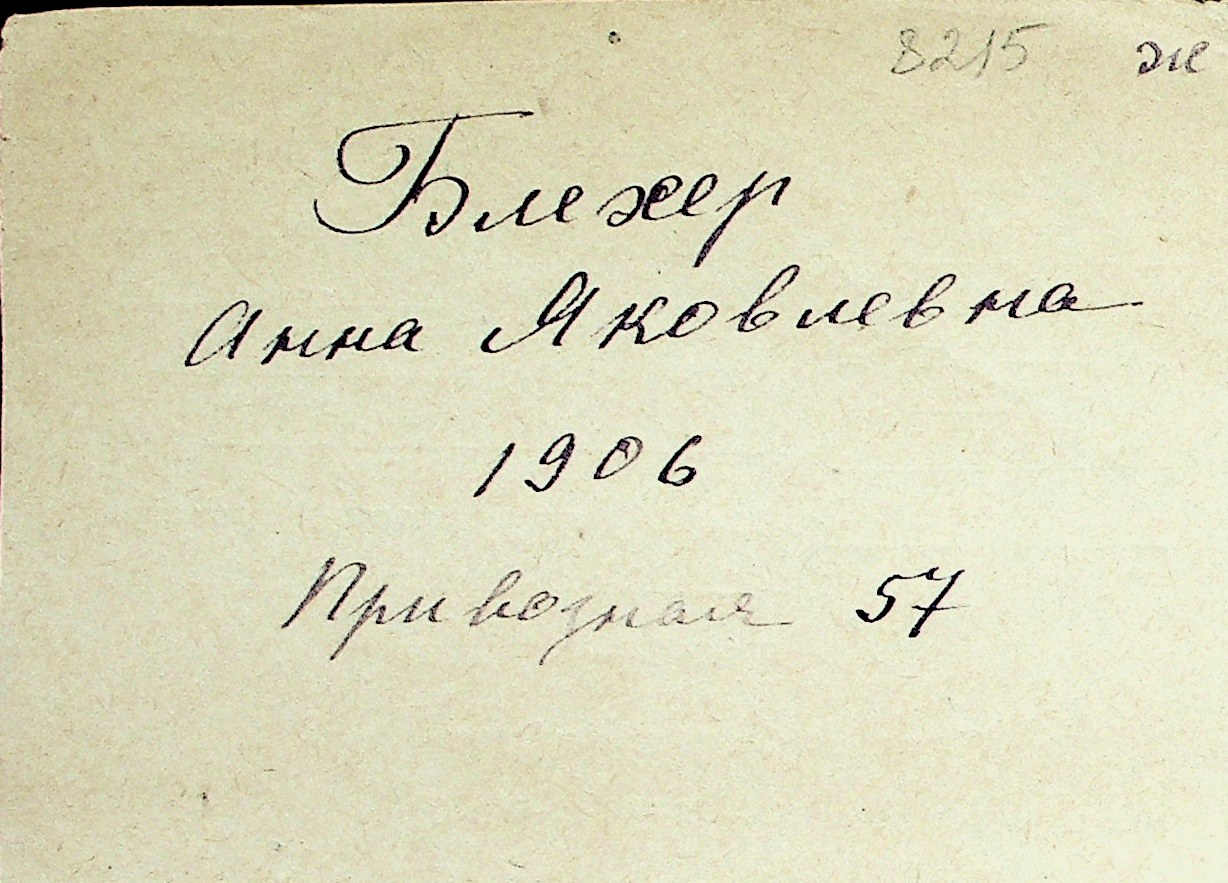 8215 ж
Блехер
Анна Яковлевна
1906
Привозная 57